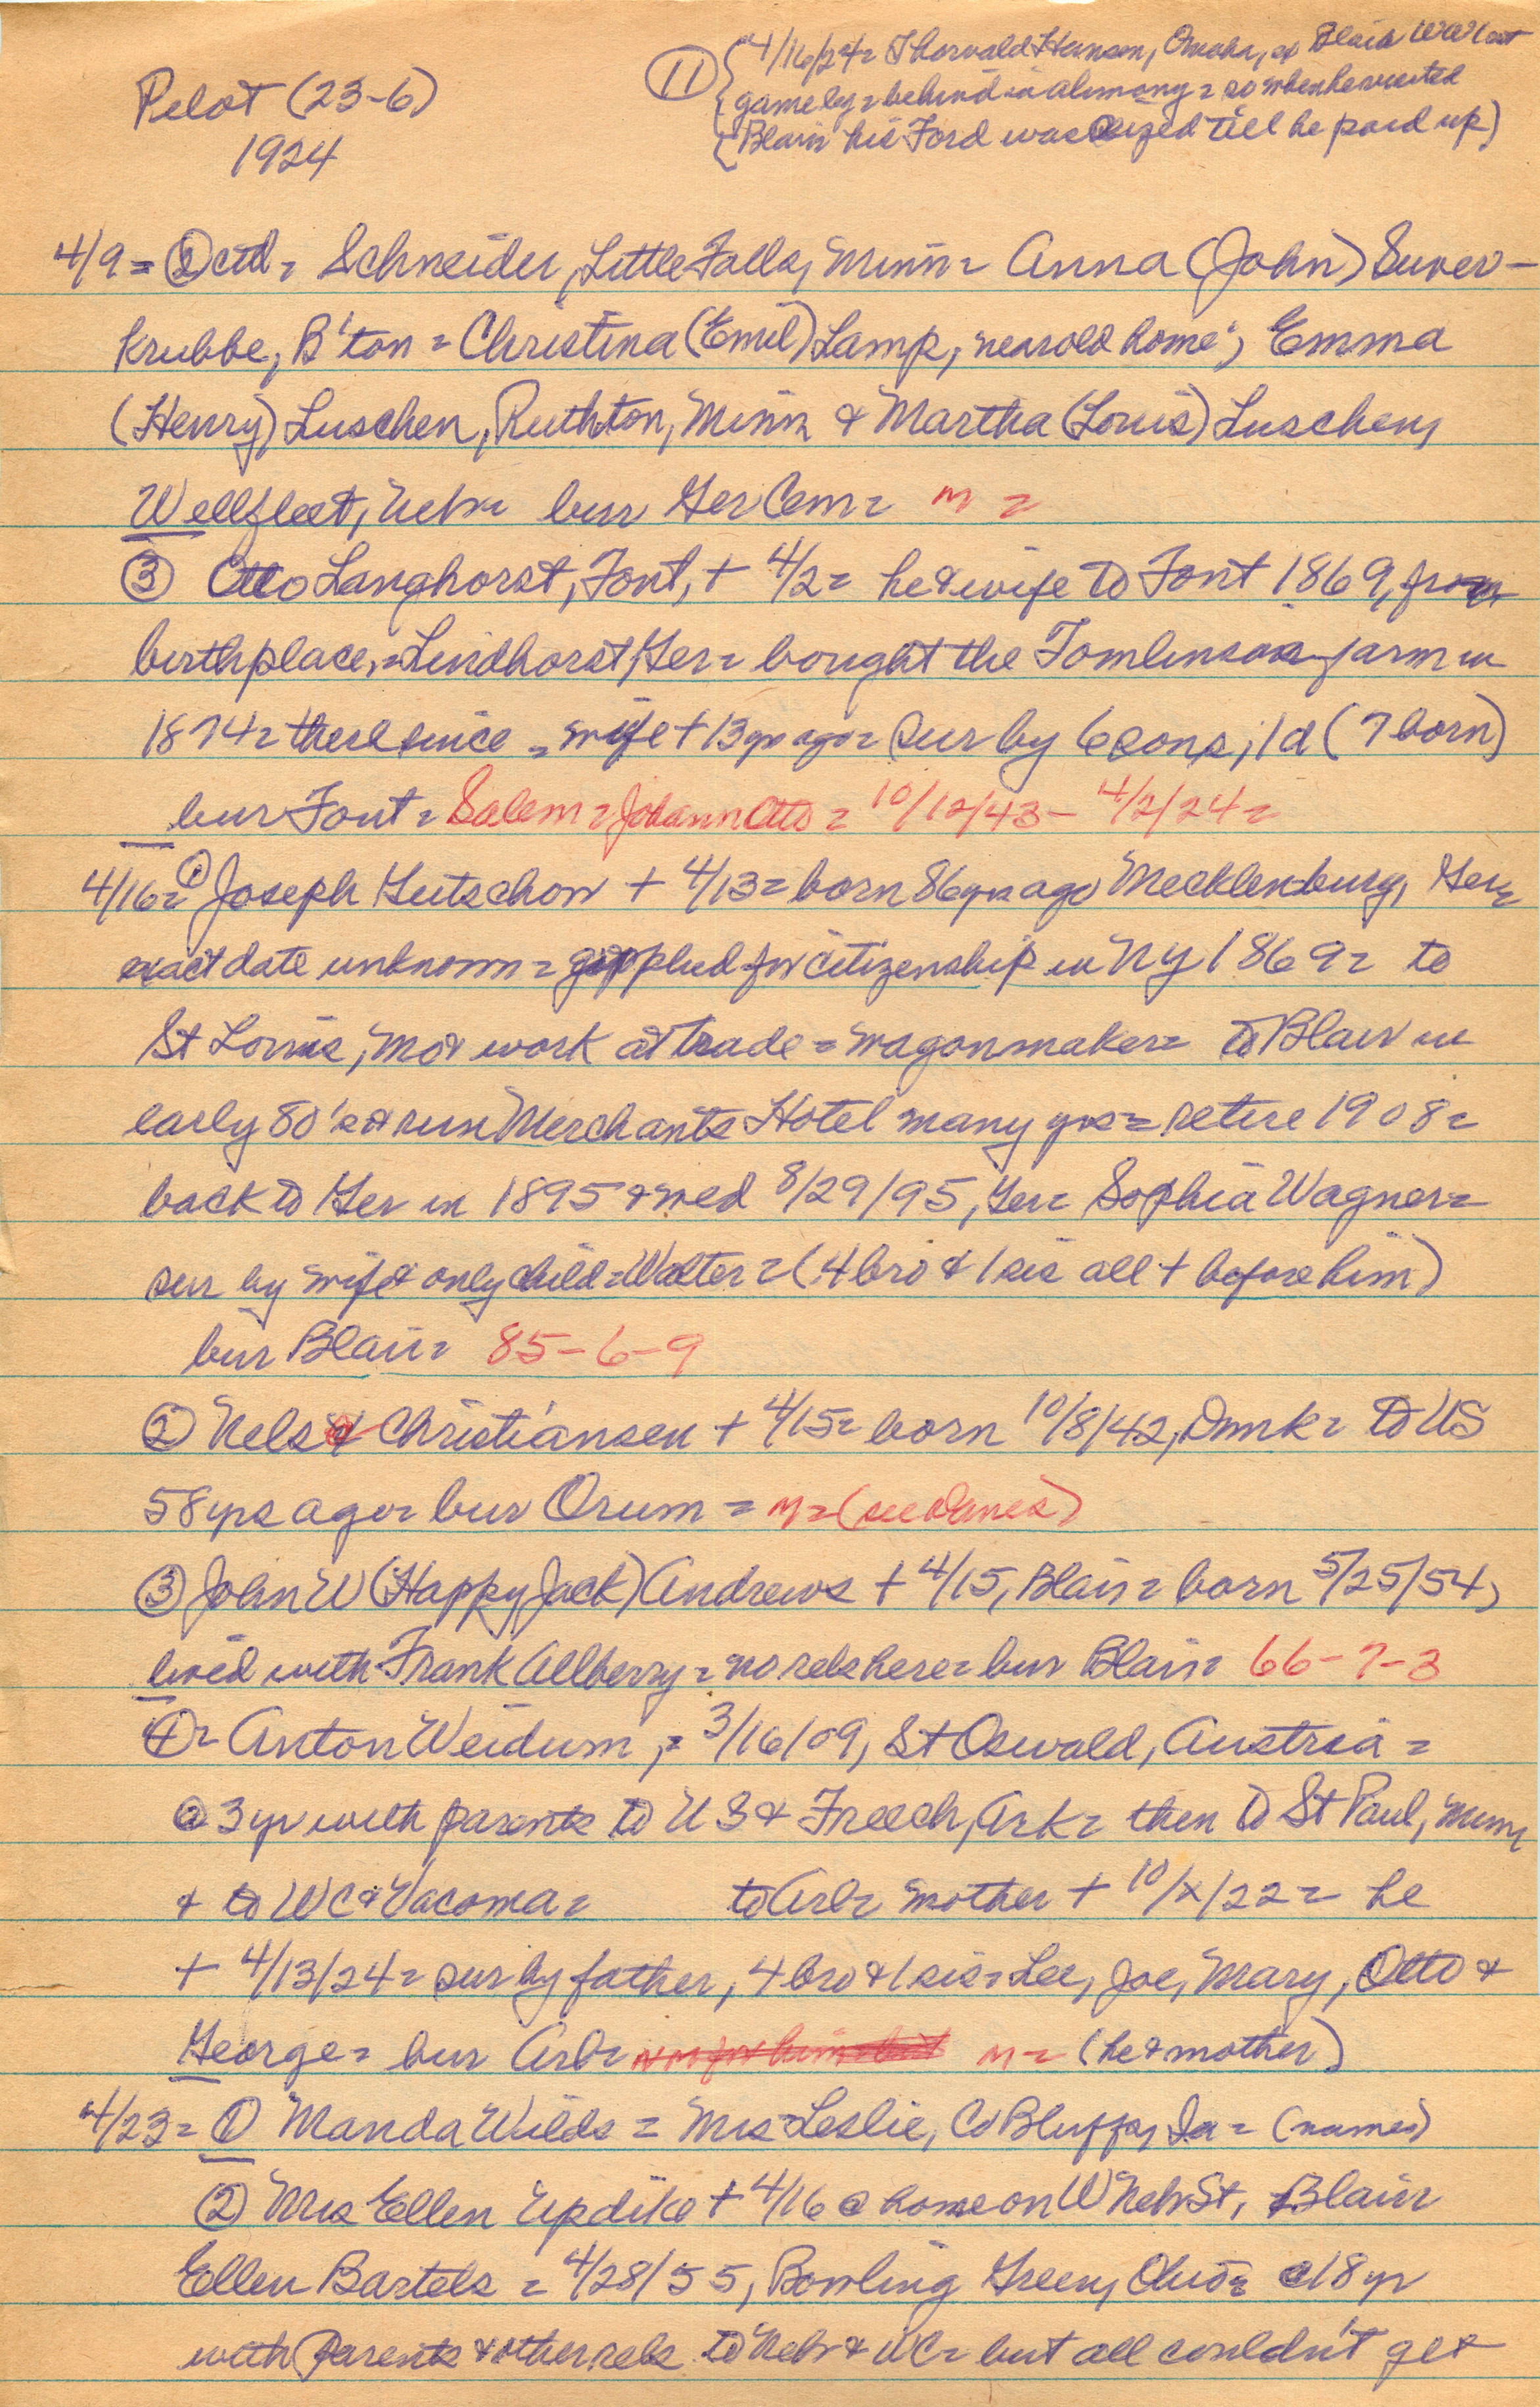 Pilot (23-6)
1924
(11) {4/16/24= Thorvald Hansen, Omaha, ex Blair WW1 vet
{game leg = behind in alimony = so when he visited
{Blair his Ford was seized till he paid up)
4/9 = (2) ctd = Schneider, Little Falls, Minn = Anna (John) Suver-
krubbe, B'ton = Christina (Emil) Lamp, 'near old home'; Emma
(Henry) Luschen, Ruthton, Minn & Martha (Louis) Luschen,
Wellfleet, Nebr = bur Ger Cem = m =
(3) Otto Langhorst, Font, + 4/2 = he & wife to Font 1869, from
birthplace, = Lindhorst, Ger = bought the Tomlinson farm in
1874 = there since = wife + 13 yrs ago = sur by 6 sons, 1 d (7 born)
bur Font = Salem = Johann Otto = 10/12/43 - 4/2/24 =
4/16 = (1) Joseph Gutschow + 4/13 = born 86 yrs ago Mecklenburg, Ger =
exact date unknown = applied for citizenship in NY 1869 = to
St Louis, Mo & work at trade = wagonmaker = to Blair in
early 80's & run Merchants Hotel many yrs = retire 1908 =
back to Ger in 1895 & wed 8/29/95, Ger = Sophia Wagner =
sur by wife & only child = Walter = (4 bro & 1 sis all + before him)
bur Blair = 85-6-9
(2) Nels Christiansen + 4/15 = born 10/8/42, Dnmk = to US
58 yrs ago = bur Orum = m = (see Danes)
(3) John W (Happy Jack) Andrews + 4/15, Blair = born 5/25/54,
lived with Frank Allberry = no rels here = bur Blair = 66-7-3
(4) = Anton Weidum, = 3/16/09, St Oswald, Austria =
@ 3 yr with parents to US & Ark = then to St Paul, Minn
& to WC & Vacoma = to Arl = mother + 10/x/22 = he
+ 4/13/24 = sur by father, 4 bro & 1 sis = Lee, Joe, Mary, Otto &
George = bur Arl = m = (he & mother)
4/23 = (1) Manda Wilds = Mrs Leslie, Co Bluffs, Ia = (names)
(2) Mrs Ellen Updike + 4/16 @ home on W Nebr St, Blair
Ellen Bartels = 4/28/55, Bowling Green, Ohio = @ 18 yr
with parents & other rels to Nebr & WC = but all couldn't get